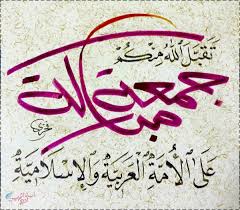 تَقَبَّلَ اللهُ مِنكُم
جمعة مباركة
فخري
عَلَى الأُمَّةِ العَرَبِيَّةِ وَالإِسْلَامِيَّةِ